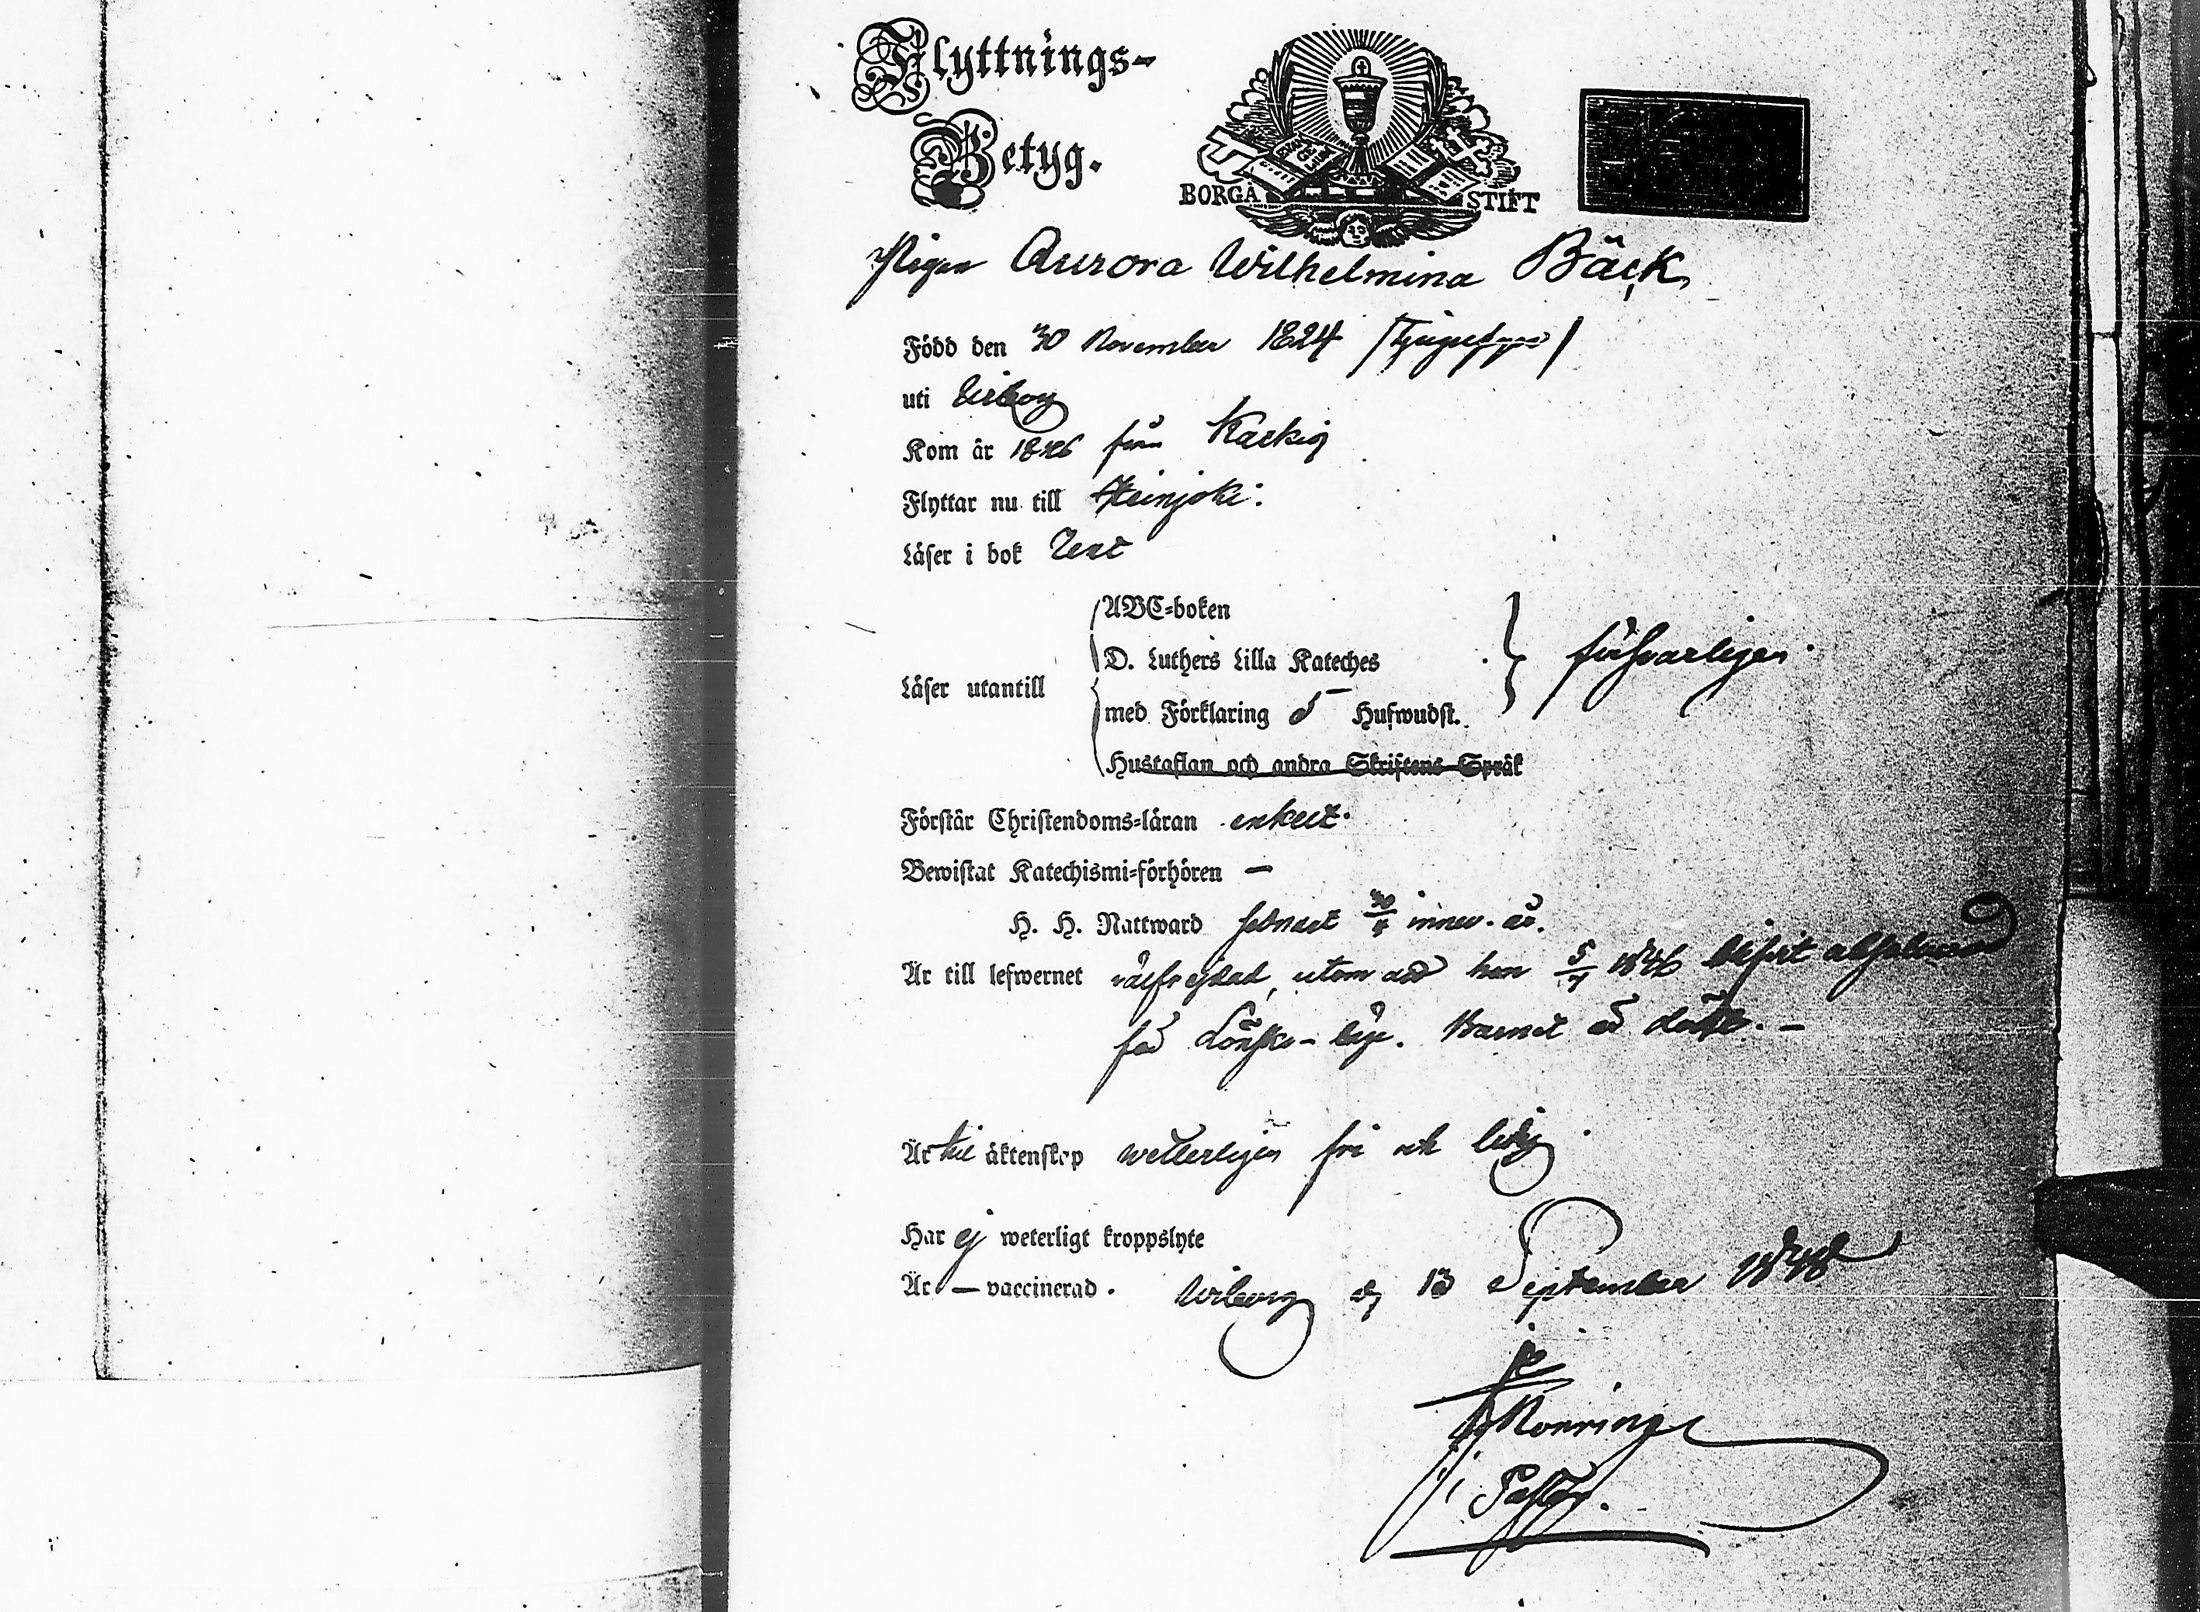 Flyttnings-
Betyg.
BORGÅ STIFT
Pigan Aurora Wilhelmina Bäck
Född den 30 November 1824 /Tjugufyra/
uti Wiborg
Kom år 1846 från
Flyttar nu till Heinjoki.
Läser i bok Rent
Läser utantill
ABC-boken
D. Luthers Lilla Kateches
med Förklaring 5 Hufwudst.
försvarligen.
Hustaflan och andra Skriftens Språk
Förstår Christendoms-läran enkelt.
Bewistat Katechismi-förhören —
H. H. Nattward sednast innev. år.
Är till lefwernet välfrejdad, utom att hon 1846 blifvit absolverad
för Lönska-läge. Barnet är dödt. —
Är till äktenskap wetterligen fri och ledig.
Har ej weterligt kroppslyte
Är — vaccinerad. Wiborg d. 13 September 1848
Pastor.